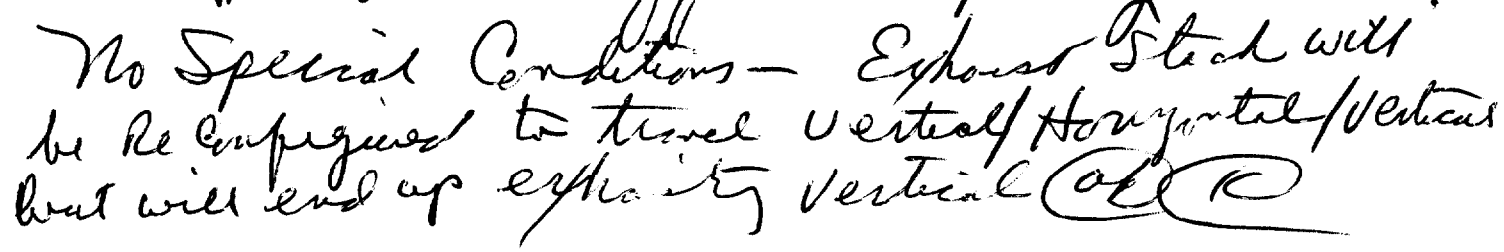 No Special Conditions — Exhaust Stack will
be Reconfigured to travel Vertical/Horizontal/Vertical
but will end up exhausting Vertical OK